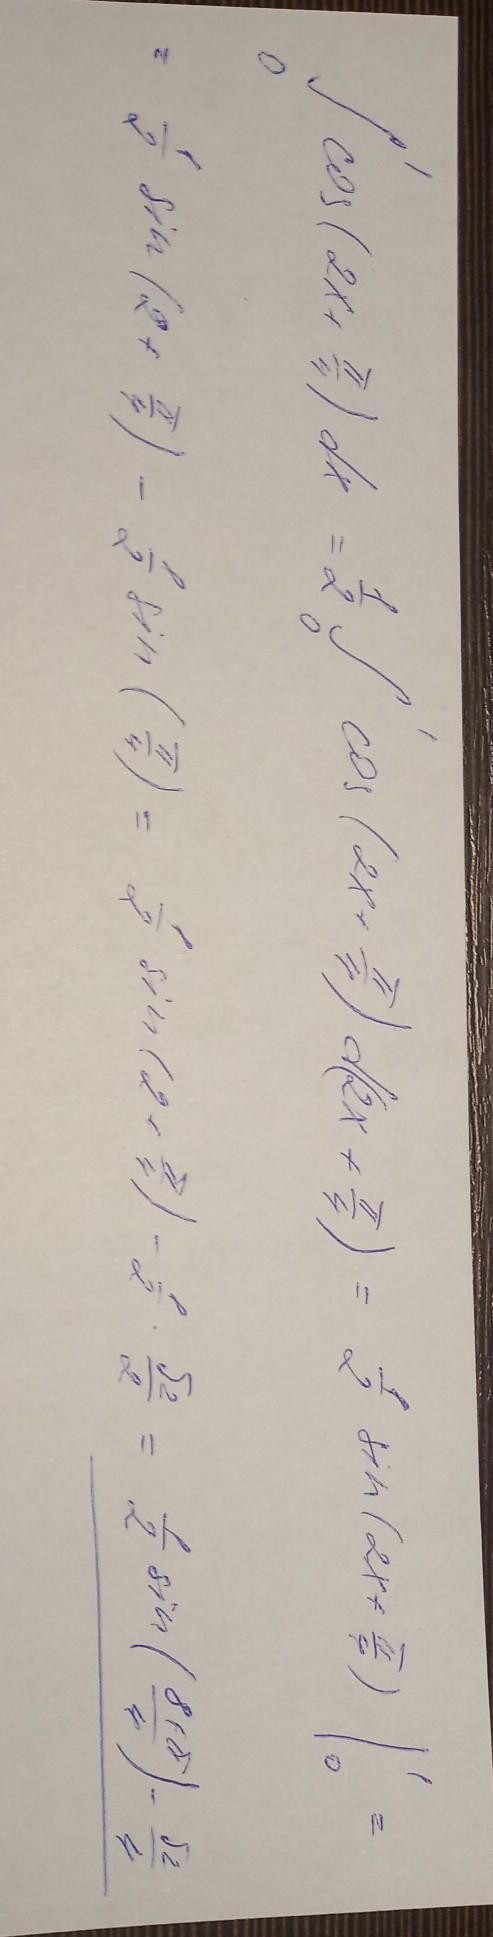 ∫₀¹ cos(2x + π/4) dx = 1/2 ∫₀¹ cos(2x + π/4) d(2x + π/4) = 1/2 sin(2x + π/4) |₀¹ =
= 1/2 sin(2 + π/4) - 1/2 sin(π/4) = 1/2 sin(2 + π/4) - 1/2 · √2/2 = 1/2 sin((8+π)/4) - √2/4